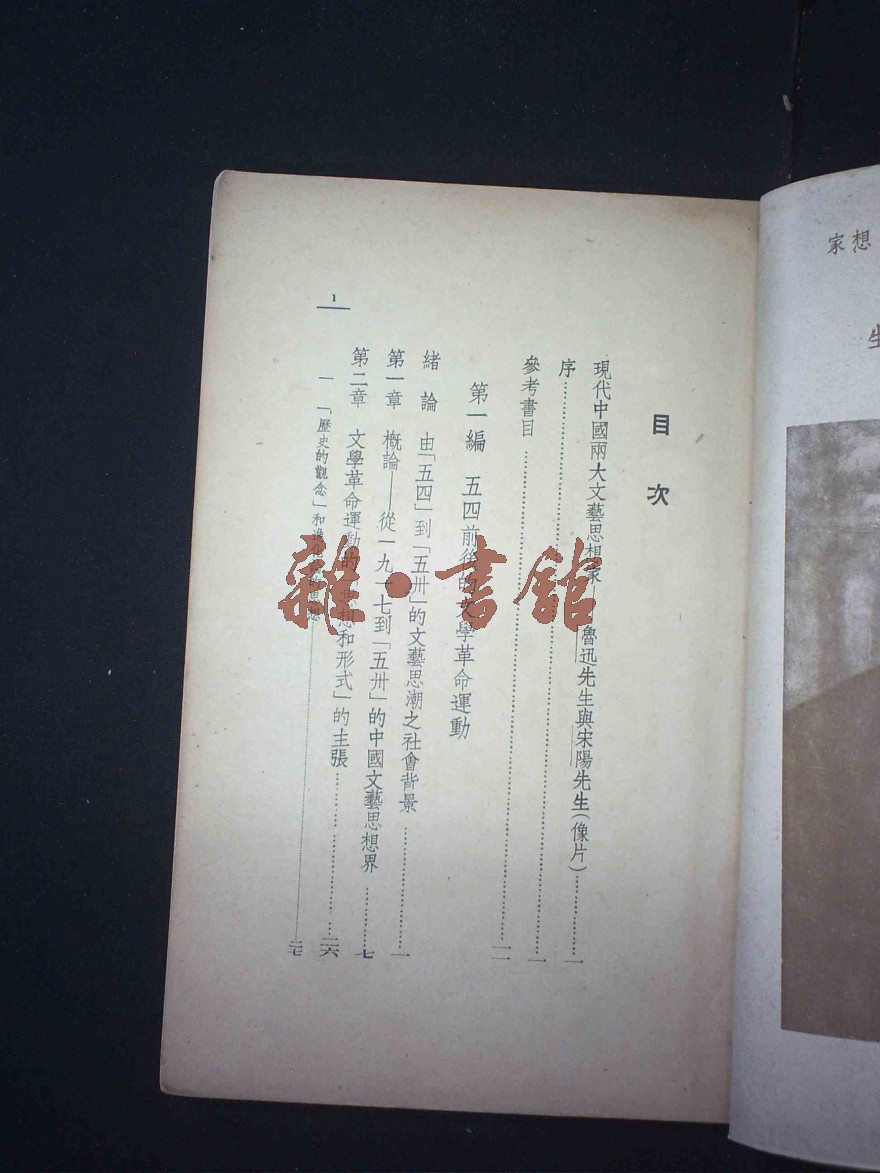 想家
生
目次
現代中國兩大文藝思想家——魯迅先生與宋陽先生(像片)……一
序……一
參考書目……一一
第一編 五四前後的文學革命運動
緒論 由「五四」到「五卅」的文藝思潮之社會背景……一
第一章 概論——從一九一七到「五卅」的中國文藝思想界……七
第二章 文學革命運動的「思想和形式」的主張……二六
一 「歷史的觀念」和進化論的思想……二七
1
雜·書館